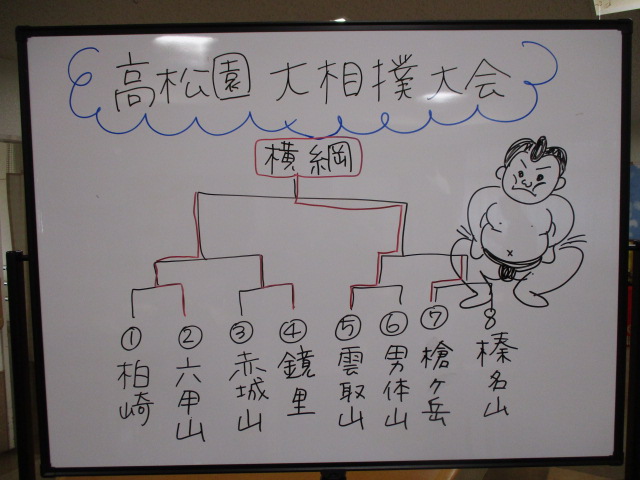 高松園 大相撲大会
横綱
① 柏崎
② 六甲山
③ 赤城山
④ 鏡里
⑤ 雲取山
⑥ 男体山
⑦ 槍ヶ岳
8 榛名山